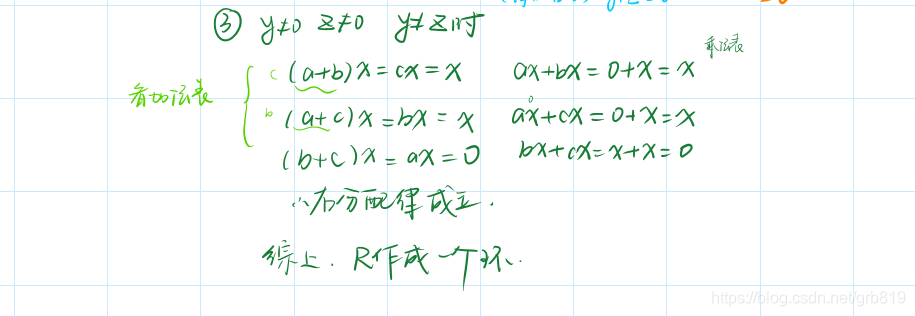 ③ y≠0 z≠0 y≠z时
乘法表
c (a+b)x=cx=x ax+bx=0+x=x
看加法表
b (a+c)x=bx=x ax+cx=0+x=x
(b+c)x=ax=0 bx+cx=x+x=0
∴右分配律成立.
综上.R作成一个环.
https://blog.csdn.net/grb819